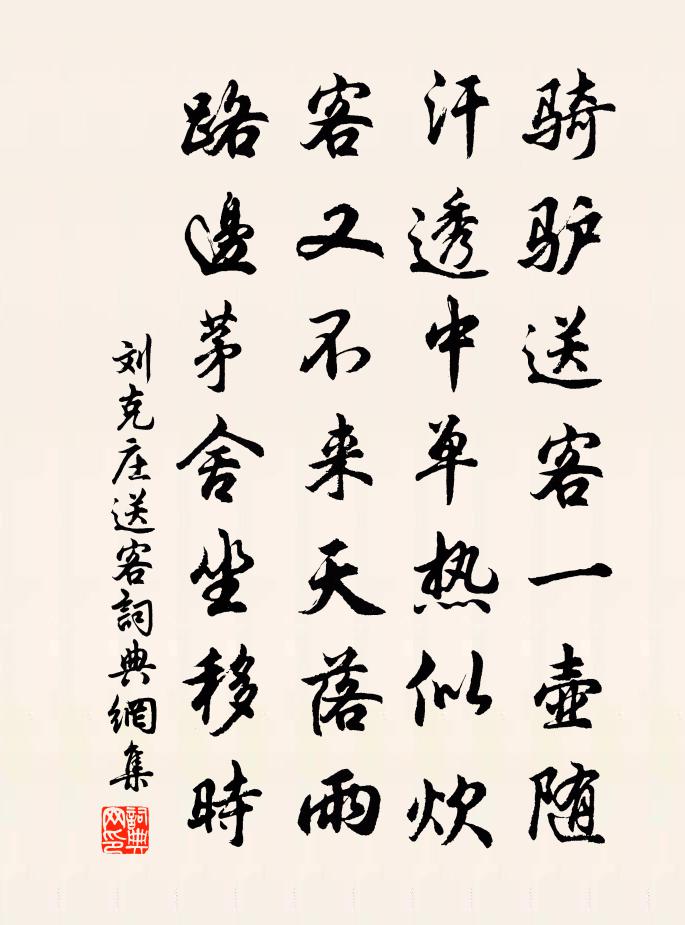 骑驴送客一壶随
汗透中单热似炊
客又不来天落雨
路邊茅舍坐移時
刘克庄送客詞典網集
詞典网印